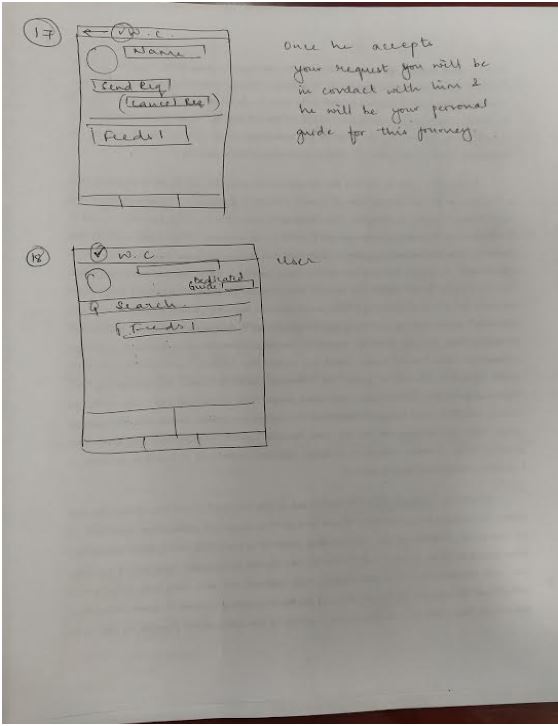 17
W.C.
Name
Send Req
(Cancel Req)
Feeds 1
Once he accepts
your request you will be
in contact with him &
he will be your personal
guide for this journey.
18
W.C
User
Dedicated
Guide
Search
Feeds 1